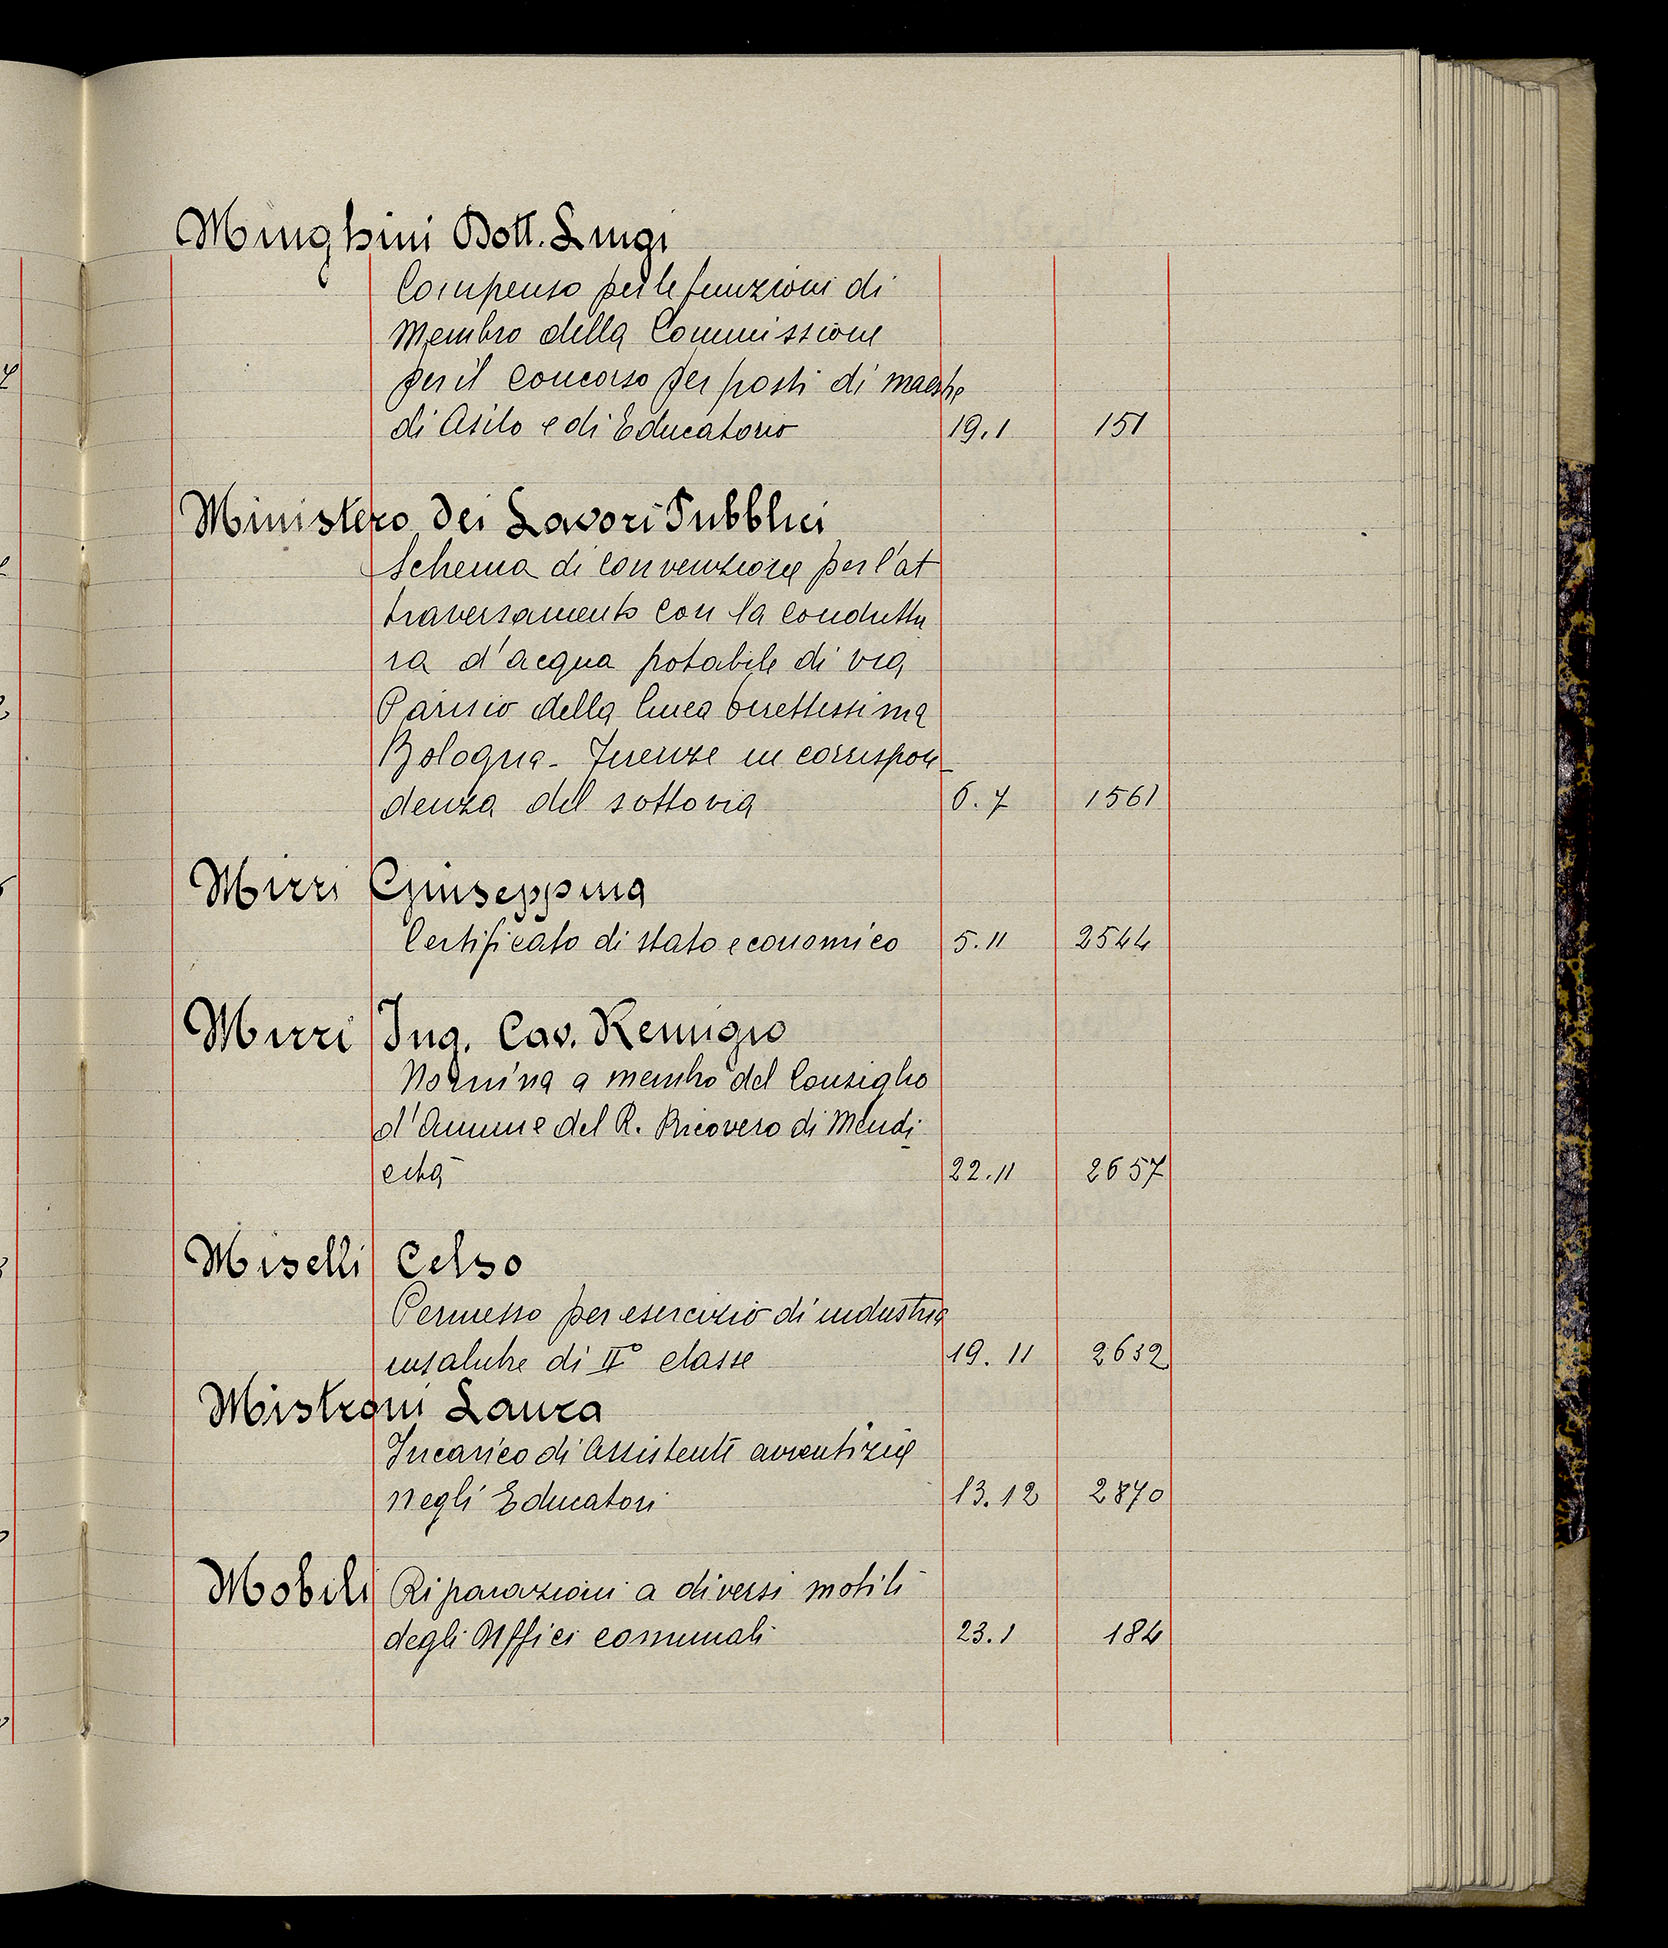 Minghini Dott. Luigi
Compenso per le funzioni di
Membro della Commissione
per il concorso per posti di maestre
di Asilo e di Educatorio 19.1 151
Ministero dei Lavori Pubblici
Schema di convenzione per l'at
traversamento con la conduttu
ra d'acqua potabile di via
Parisio della linea Direttissima
Bologna - Firenze in corrispon-
denza del sottovia 6.7 1561
Mirri Giuseppina
Certificato di stato economico 5.11 2544
Mirri Ing. Cav. Remigio
Nomina a membro del Consiglio
d'Ammne del R. Ricovero di Mendi
cità 22.11 2657
Miselli Celso
Permesso per esercizio di industria
insalubre di II° classe 19.11 2632
Mistroni Laura
Incarico di Assistente avventizia
negli Educatori 13.12 2870
Mobili Riparazioni a diversi mobili
degli Uffici comunali 23.1 184